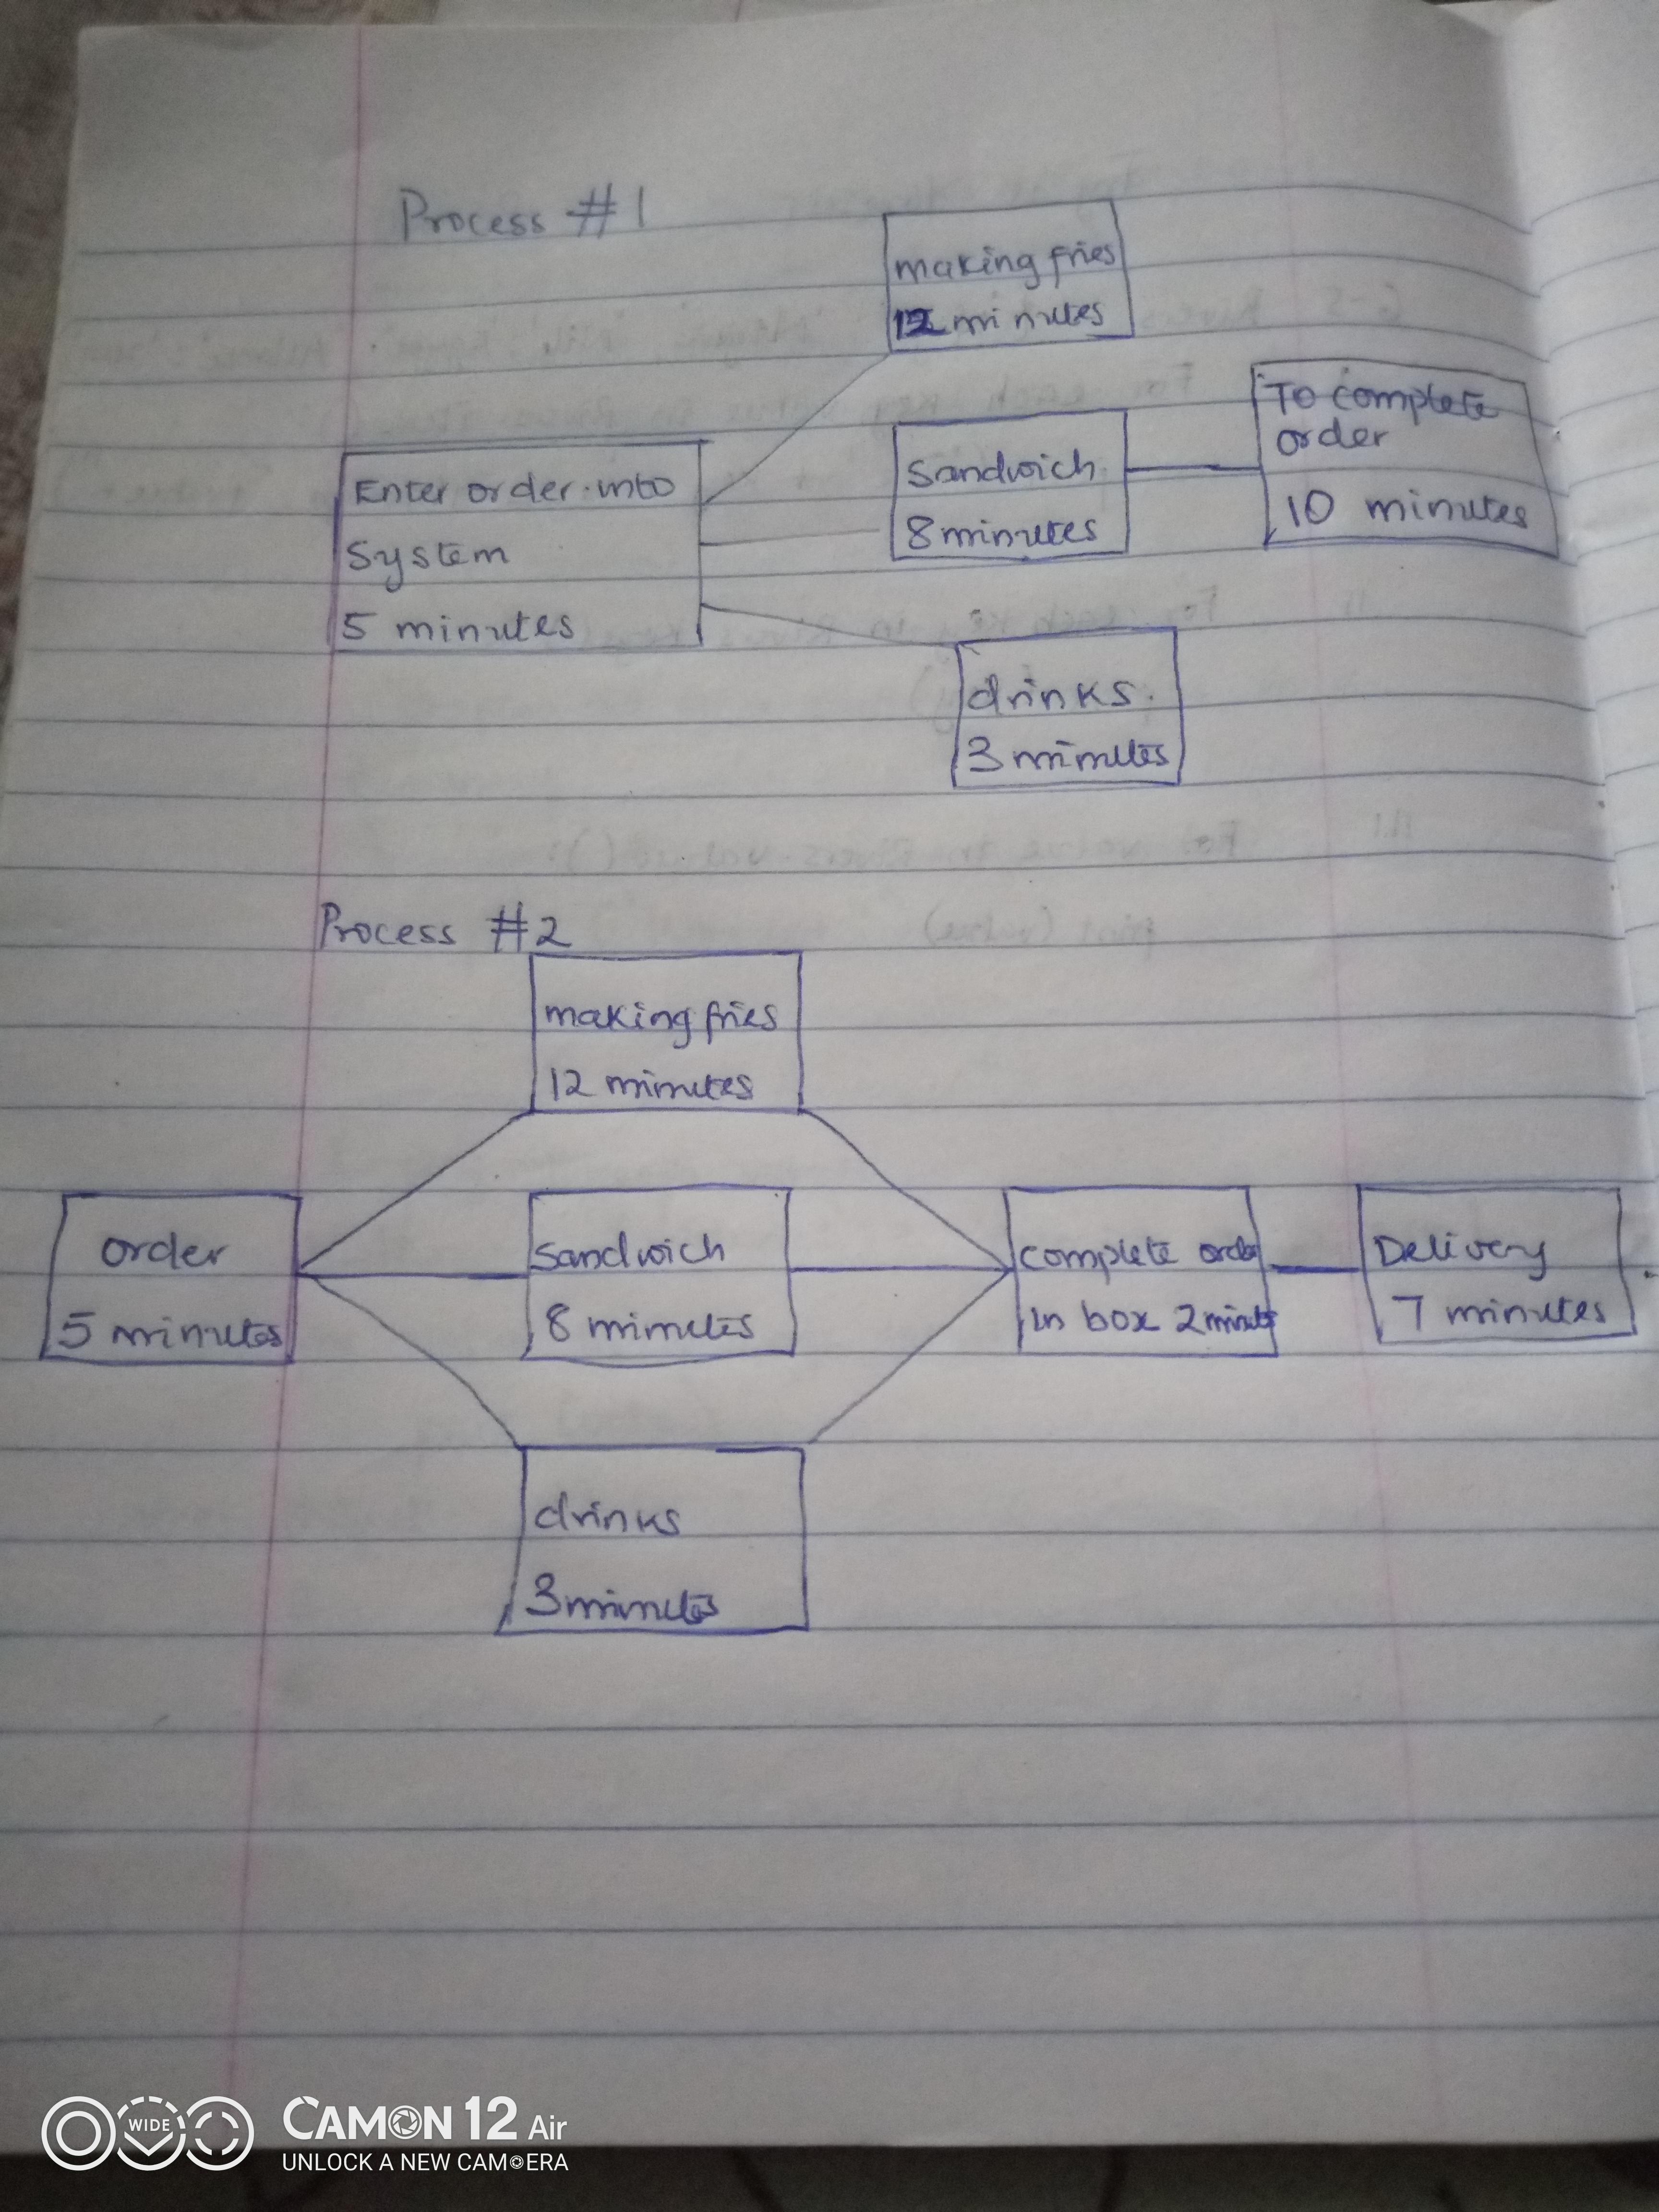 Process #1
making fries
12 minutes
Enter order into
System
5 minutes
Sandwich
8 minutes
To complete
order
10 minutes
drinks.
3 minutes
Process #2
making fries
12 minutes
order
5 minutes
Sandwich
8 minutes
complete order
in box 2 minute
Delivery
7 minutes
drinks
3 minutes
WIDE
CAMON 12 Air
UNLOCK A NEW CAMERA